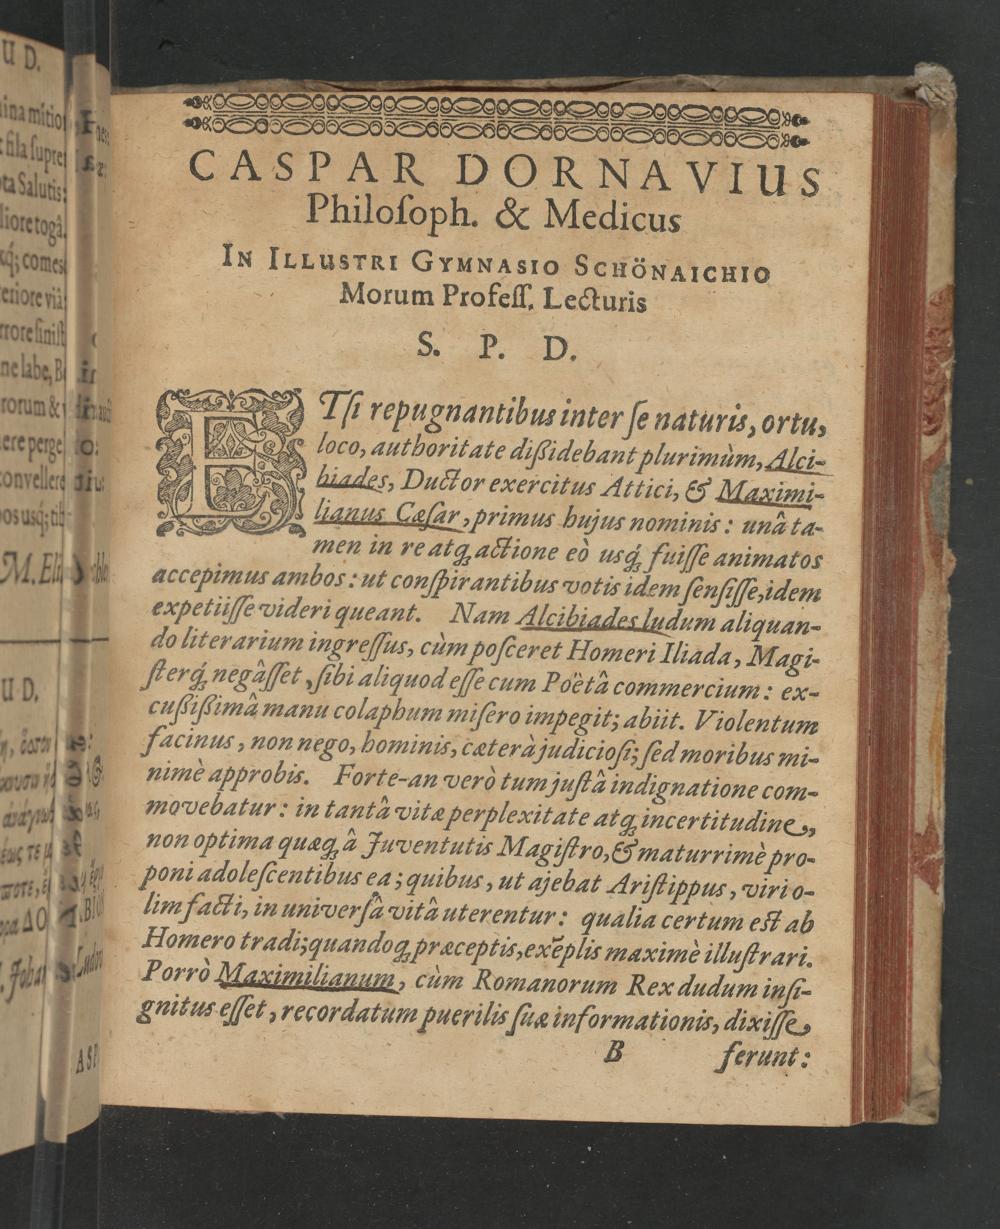 CASPAR DORNAVIUS
Philoſoph. & Medicus
IN ILLUSTRI GYMNASIO SCHÖNAICHIO
Morum Profeſſ. Lecturis
S. P. D.
ETſi repugnantibus inter ſe naturis, ortu,
loco, authoritate dißidebant plurimùm, Alci-
biades, Ductor exercitus Attici, & Maximi-
lianus Cæſar, primus hujus nominis: unâ ta-
men in re atq́; actione eò usq́; fuiſſe animatos
accepimus ambos: ut conſpirantibus votis idem ſenſiſſe, idem
expetiiſſe videri queant. Nam Alcibiades ludum aliquan-
do literarium ingreſſus, cùm poſceret Homeri Iliada, Magi-
ſterq́; negâſſet, ſibi aliquod eſſe cum Poëtâ commercium: ex-
cußißimâ manu colaphum miſero impegit; abiit. Violentum
facinus, non nego, hominis, cæterà judicioſi; ſed moribus mi-
nimè approbis. Forte-an verò tum juſtâ indignatione com-
movebatur: in tantâ vitæ perplexitate atq; incertitudine,
non optima quæq; â Juventutis Magiſtro, & maturrimè pro-
poni adoleſcentibus ea; quibus, ut ajebat Ariſtippus, viri o-
lim facti, in univerſâ vitâ uterentur: qualia certum est ab
Homero tradi; quandoq; præceptis, exēplis maximè illuſtrari.
Porrò Maximilianum, cùm Romanorum Rex dudum inſi-
gnitus eſſet, recordatum puerilis ſuæ informationis, dixiſſe
B ferunt: